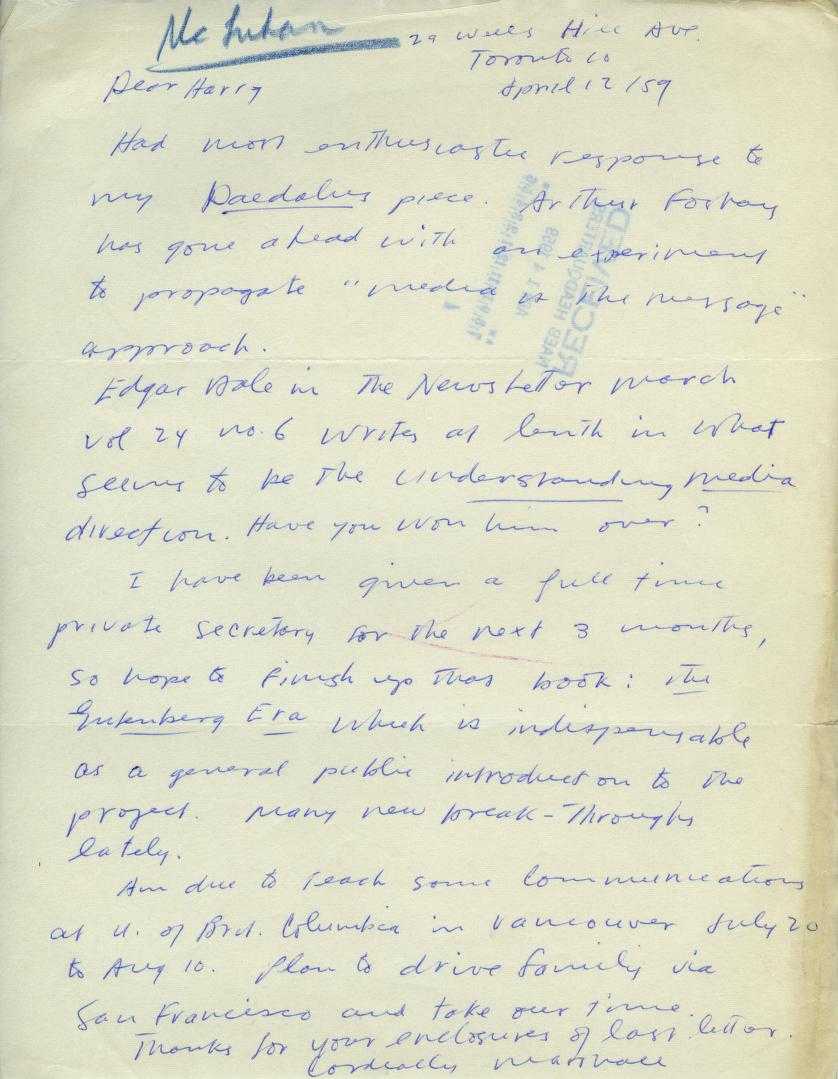 McLuhan
29 Wells Hill Ave.
Toronto 10
April 12/59
Dear Harry
Had most enthusiastic response to
my Daedalus piece. Arthur Foshay
has gone ahead with an experiment
to propagate "media is the message"
approach.
RECEIVED
NAEB HEADQUARTERS
Edgar Dale in The NewsLetter march
vol 24 no. 6 writes at lenth in what
seems to be the understanding media
direction. Have you won him over?
I have been given a full time
private secretary for the next 3 months,
so hope to finish up that book: The
Gutenberg Era which is indispensable
as a general public introduction to the
project. Many new break-throughs
lately.
Am due to teach some communications
at U. of Brit. Columbia in Vancouver July 20
to Aug 10. Plan to drive family via
San Francisco and take our time.
Thanks for your enclosures of last letter.
Cordially Marshall